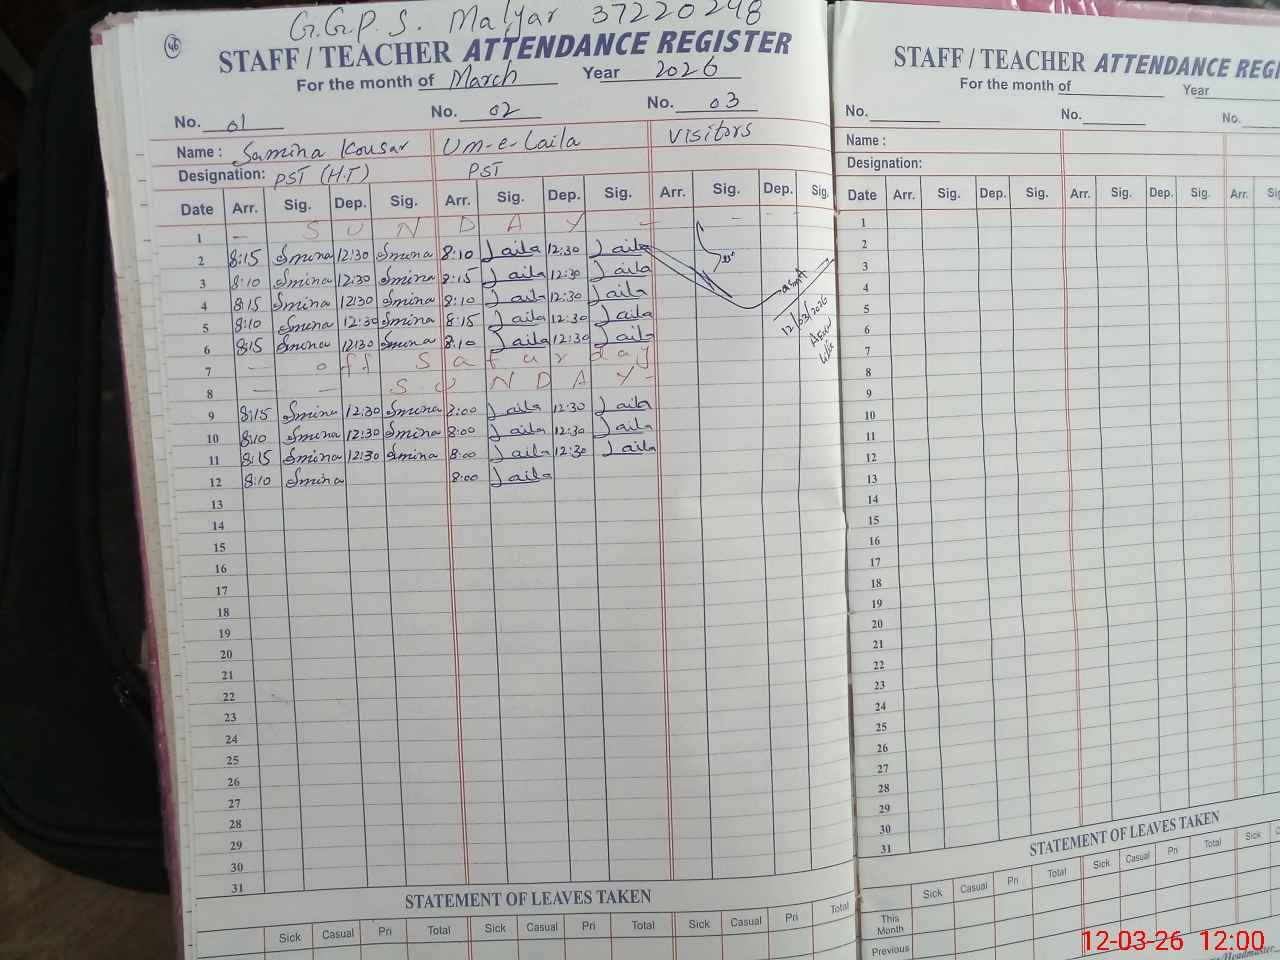 46
G.G.P.S. Malyar 37220248
STAFF / TEACHER ATTENDANCE REGISTER
For the month of March Year 2026
No. 01 No. 02 No. 03
Name : Samina Kousar Um-e-Laila Visitors
Designation: PST (H.T) PST
Date Arr. Sig. Dep. Sig. Arr. Sig. Dep. Sig. Arr. Sig. Dep. Sig.
1 - S U N D A Y -
2 8:15 Smina 12:30 Smina 8:10 Laila 12:30 Laila
3 8:10 Smina 12:30 Smina 8:15 Laila 12:30 Laila
4 8:15 Smina 12:30 Smina 8:10 Laila 12:30 Laila
5 8:10 Smina 12:30 Smina 8:15 Laila 12:30 Laila
6 8:15 Smina 12:30 Smina 8:10 Laila 12:30 Laila
7 - off Saturday
8 - - S U N D A Y -
9 8:15 Smina 12:30 Smina 8:00 Laila 12:30 Laila
10 8:10 Smina 12:30 Smina 8:00 Laila 12:30 Laila
11 8:15 Smina 12:30 Smina 8:00 Laila 12:30 Laila
12 8:10 Smina 8:00 Laila
12/03/2026
13
14
15
16
17
18
19
20
21
22
23
24
25
26
27
28
29
30
31
STATEMENT OF LEAVES TAKEN
Sick Casual Pri Total Sick Casual Pri Total Sick Casual Pri Total
STAFF / TEACHER ATTENDANCE REGI
For the month of Year
No. No. No.
Name :
Designation:
Date Arr. Sig. Dep. Sig. Arr. Sig. Dep. Sig. Arr. Sig.
1
2
3
4
5
6
7
8
9
10
11
12
13
14
15
16
17
18
19
20
21
22
23
24
25
26
27
28
29
30
31
STATEMENT OF LEAVES TAKEN
Sick Casual Pri Total Sick Casual Pri Total Sick
This Month
Previous
12-03-26 12:00